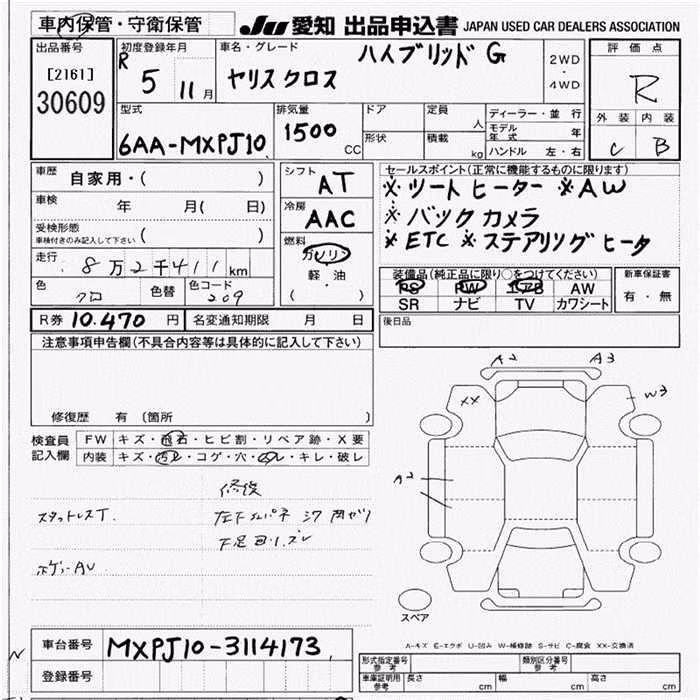 車内保管・守衛保管 JU 愛知 出品申込書 JAPAN USED CAR DEALERS ASSOCIATION
出品番号 [2161] 30609
初度登録年月 R 5 11 月
車名・グレード ハイブリッド G
ヤリスクロス
2WD ・ 4WD
評価点 R
外装 内装
C B
型式 6AA-MXPJ10
排気量 1500 CC
ドア 形状
定員 人
積載 kg
ディーラー・並行
モデル年式 年
ハンドル 左・右
車歴 自家用・( )
車検 年 月( 日)
受検形態 車検付きのみ記入して下さい ( )
走行 8万2千411 km
色 クロ 色替 色コード 209
シフト AT
冷房 AAC
燃料 ガソリン
軽・油
( ・ )
セールスポイント(正常に機能するものに限ります)
※シートヒーター ※AW
※バックカメラ
※ETC ※ステアリングヒータ
装備品(純正品に限り○をつけてください)
PS PW エアB AW
SR ナビ TV カワシート
新車保証書
有・無
R券 10.470 円 名変通知期限 月 日
後日品
注意事項申告欄(不具合内容等は具体的に記入して下さい)
修復歴 有 (箇所 )
検査員記入欄
FW キズ・飛石・ヒビ割・リペア跡・X要
内装 キズ・汚レ・コゲ・穴・スレ・キレ・破レ
修復
スタットレスT.
下足回リズレ
A2 A3
XX W3
A2
スペア
A-キズ E-エクボ U-凹み W-補修跡 S-サビ C-腐食 XX-交換済
車台番号 MXPJ10-3114173
登録番号
形式指定番号 参考 類別区分番号 参考
車庫証明用 参考 長さ cm 幅 cm 高さ cm